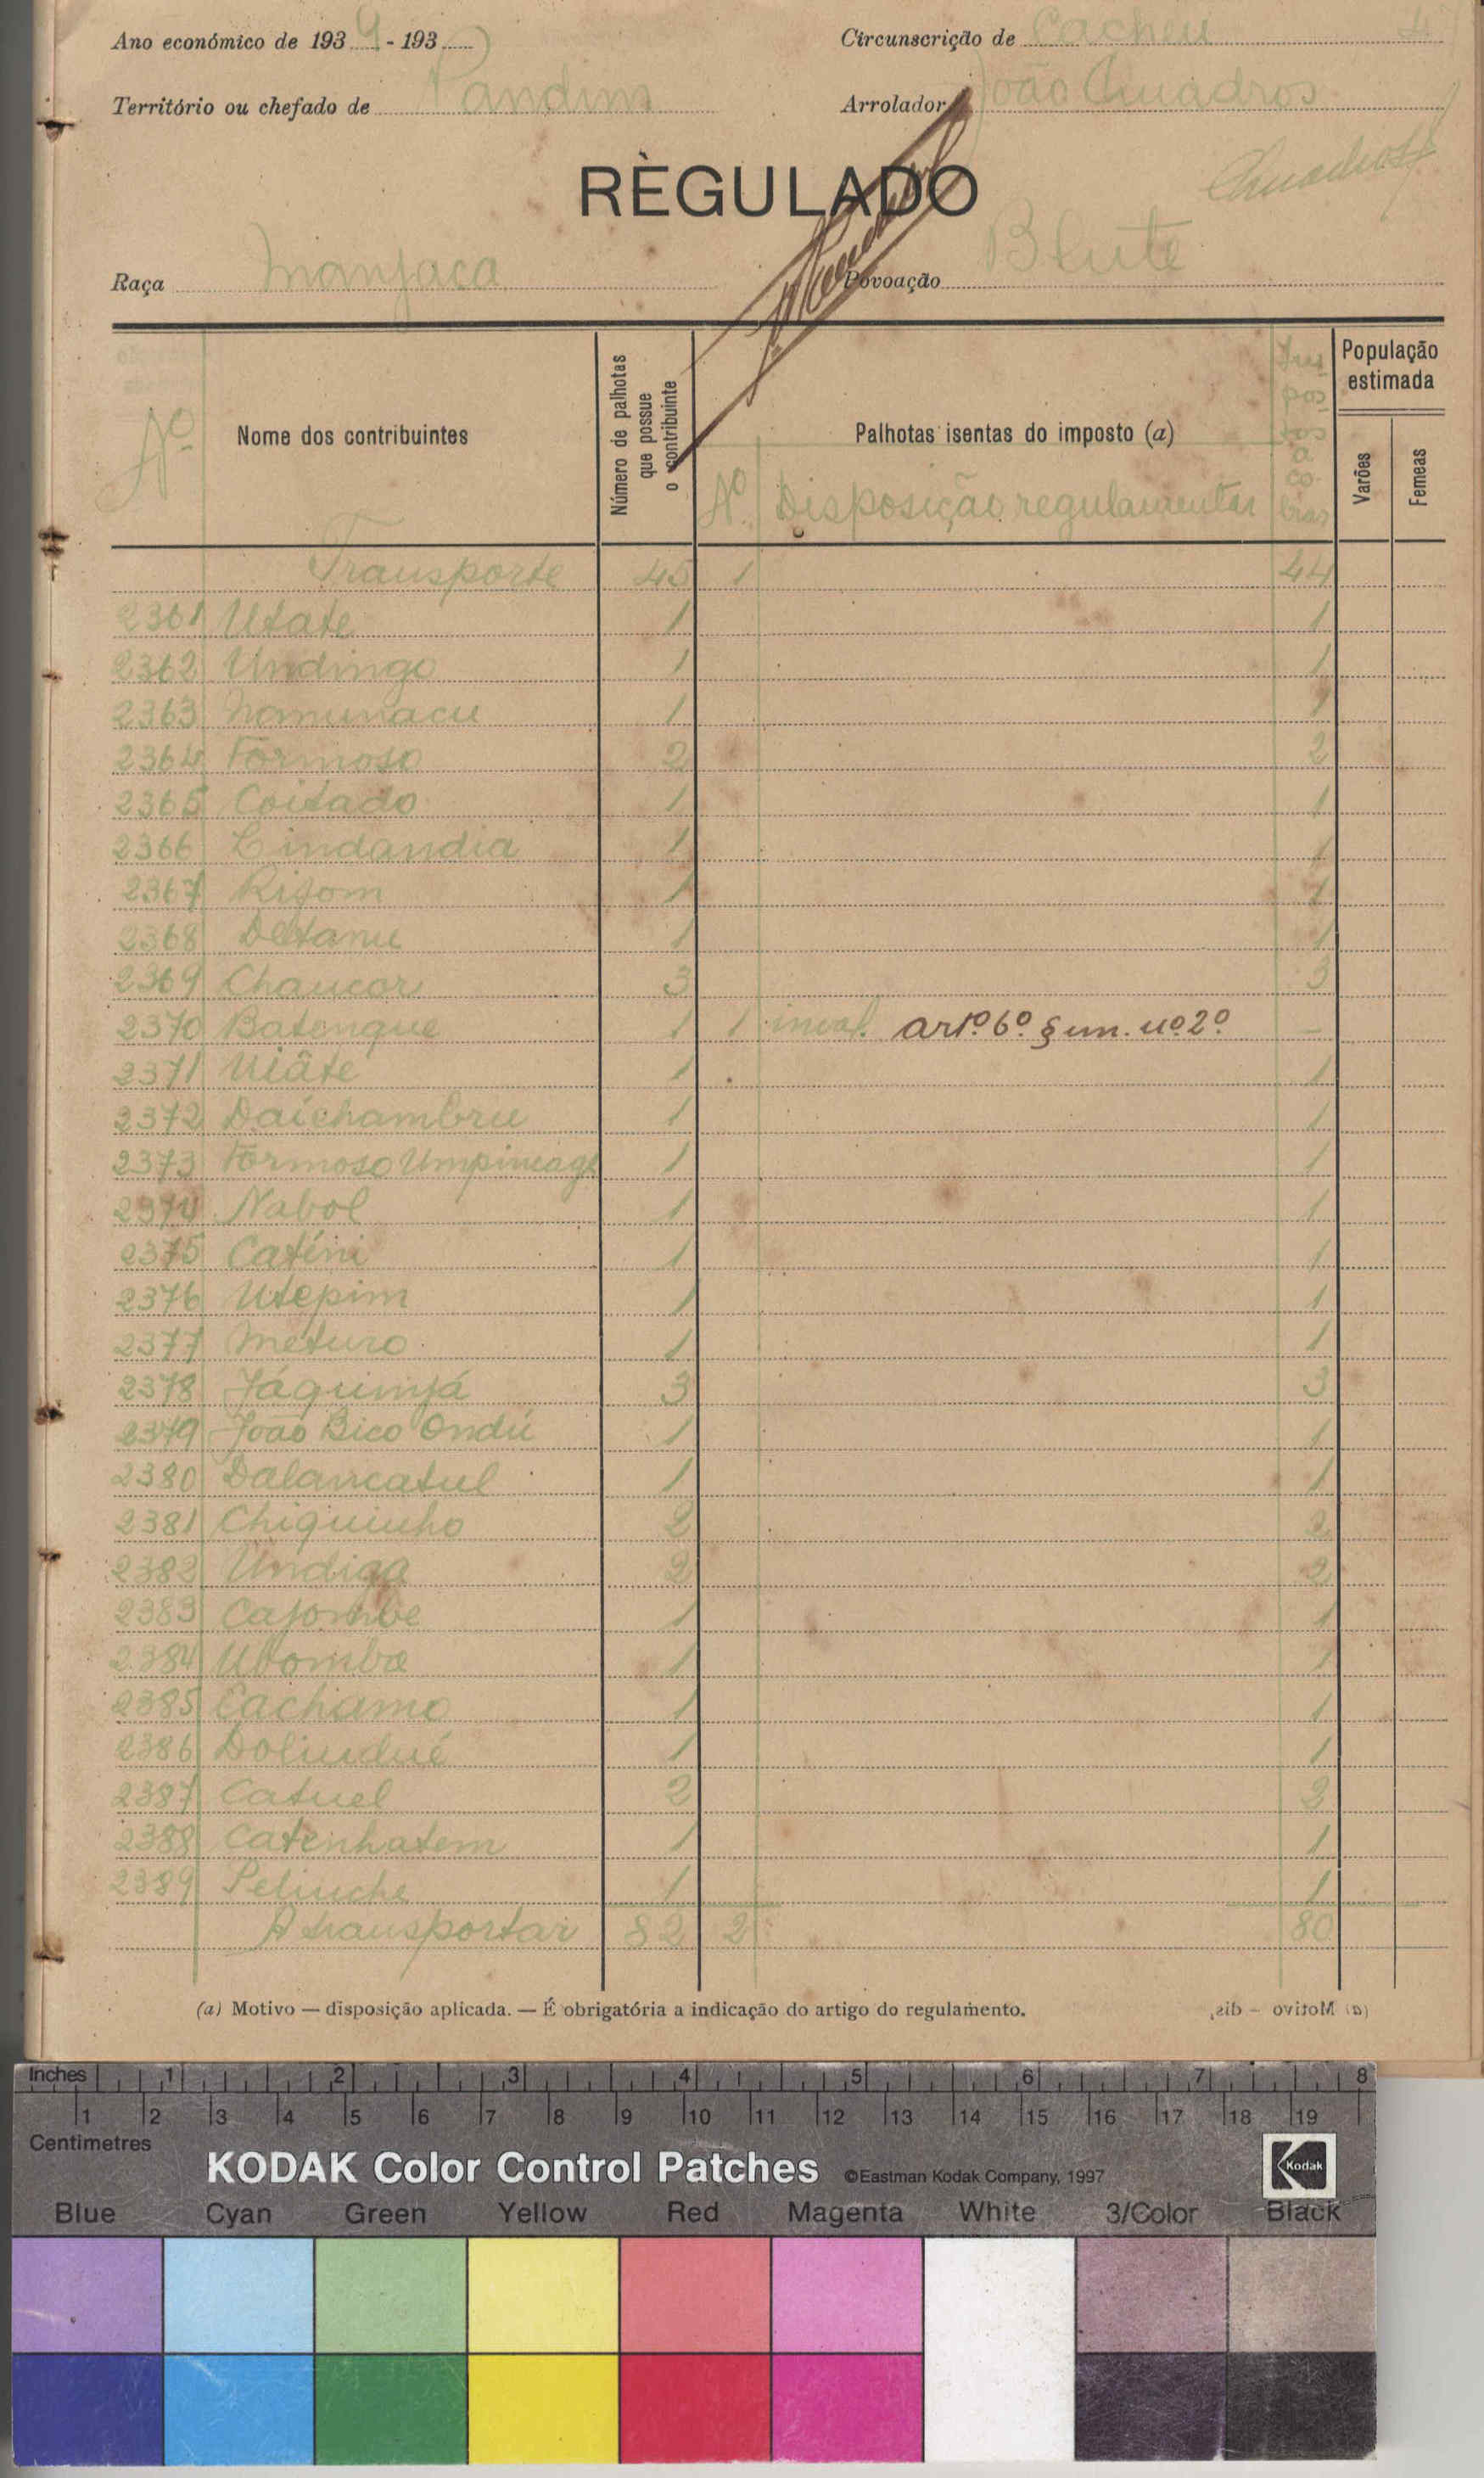 Ano económico de 1939 - 193
Circunscrição de Cacheu
Território ou chefado de Pandim
Arrolador João Quadros
RÈGULADO
Quadros
Raça Manjaca
Povoação Blute
Nº
Nome dos contribuintes
Número de palhotas que possue o contribuinte
Palhotas isentas do imposto (a)
Nº Disposição regulamentar
Impostos a cobrar
População estimada
Varões
Femeas
Transporte 45 1 44
2361 Utate 1 1
2362 Undingo 1 1
2363 Nomunacu 1 1
2364 Formoso 2 2
2365 Coitado 1 1
2366 Lindandia 1 1
2367 Rijom 1 1
2368 1 1
2369 Chaucar 3 3
2370 Batenque 1 1 inval. artº 6º § un. nº 2º —
2371 Uiâte 1 1
2372 Daíchambru 1 1
2373 Formoso 1 1
2374 Nabol 1 1
2375 Caténi 1 1
2376 Utepim 1 1
2377 Meturo 1 1
2378 Jáquimjá 3 3
2379 João Bico Ondú 1 1
2380 Dalancatul 1 1
2381 Chiquinho 2 2
2382 Undiga 2 2
2383 Cajombe 1 1
2384 Utomba 1 1
2385 Cachamo 1 1
2386 Dolindué 1 1
2387 Catuel 2 2
2388 Catenhatem 1 1
2389 Pelinche 1 1
A transportar 82 2 80
(a) Motivo — disposição aplicada. — É obrigatória a indicação do artigo do regulamento.
(a) Motivo — dis.
Inches 1 2 3 4 5 6 7 8
1 2 3 4 5 6 7 8 9 10 11 12 13 14 15 16 17 18 19
Centimetres
KODAK Color Control Patches ©Eastman Kodak Company, 1997 Kodak
Blue Cyan Green Yellow Red Magenta White 3/Color Black